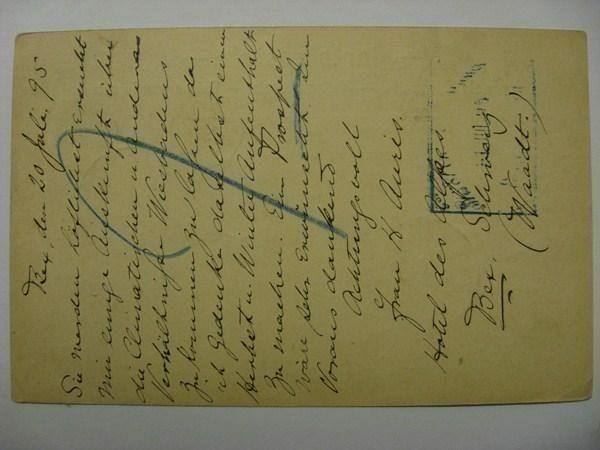 Bex, den 20 Juli, 95
Sie werden höflichst ersucht
mir einige Auskunft über
die Climatischen u. anderes
Verhältnisse Wiesbadens
zu kommen zu lassen da
ich gedenke daselbst einen
Herbst u. Winter Aufenthalt
zu machen. Ein Prospect
wäre sehr erwünscht. Im
Voraus dankend
Achtungsvoll
Frau H
Hotel des Alpes.
Bex. Schweiz
(Waadt.)